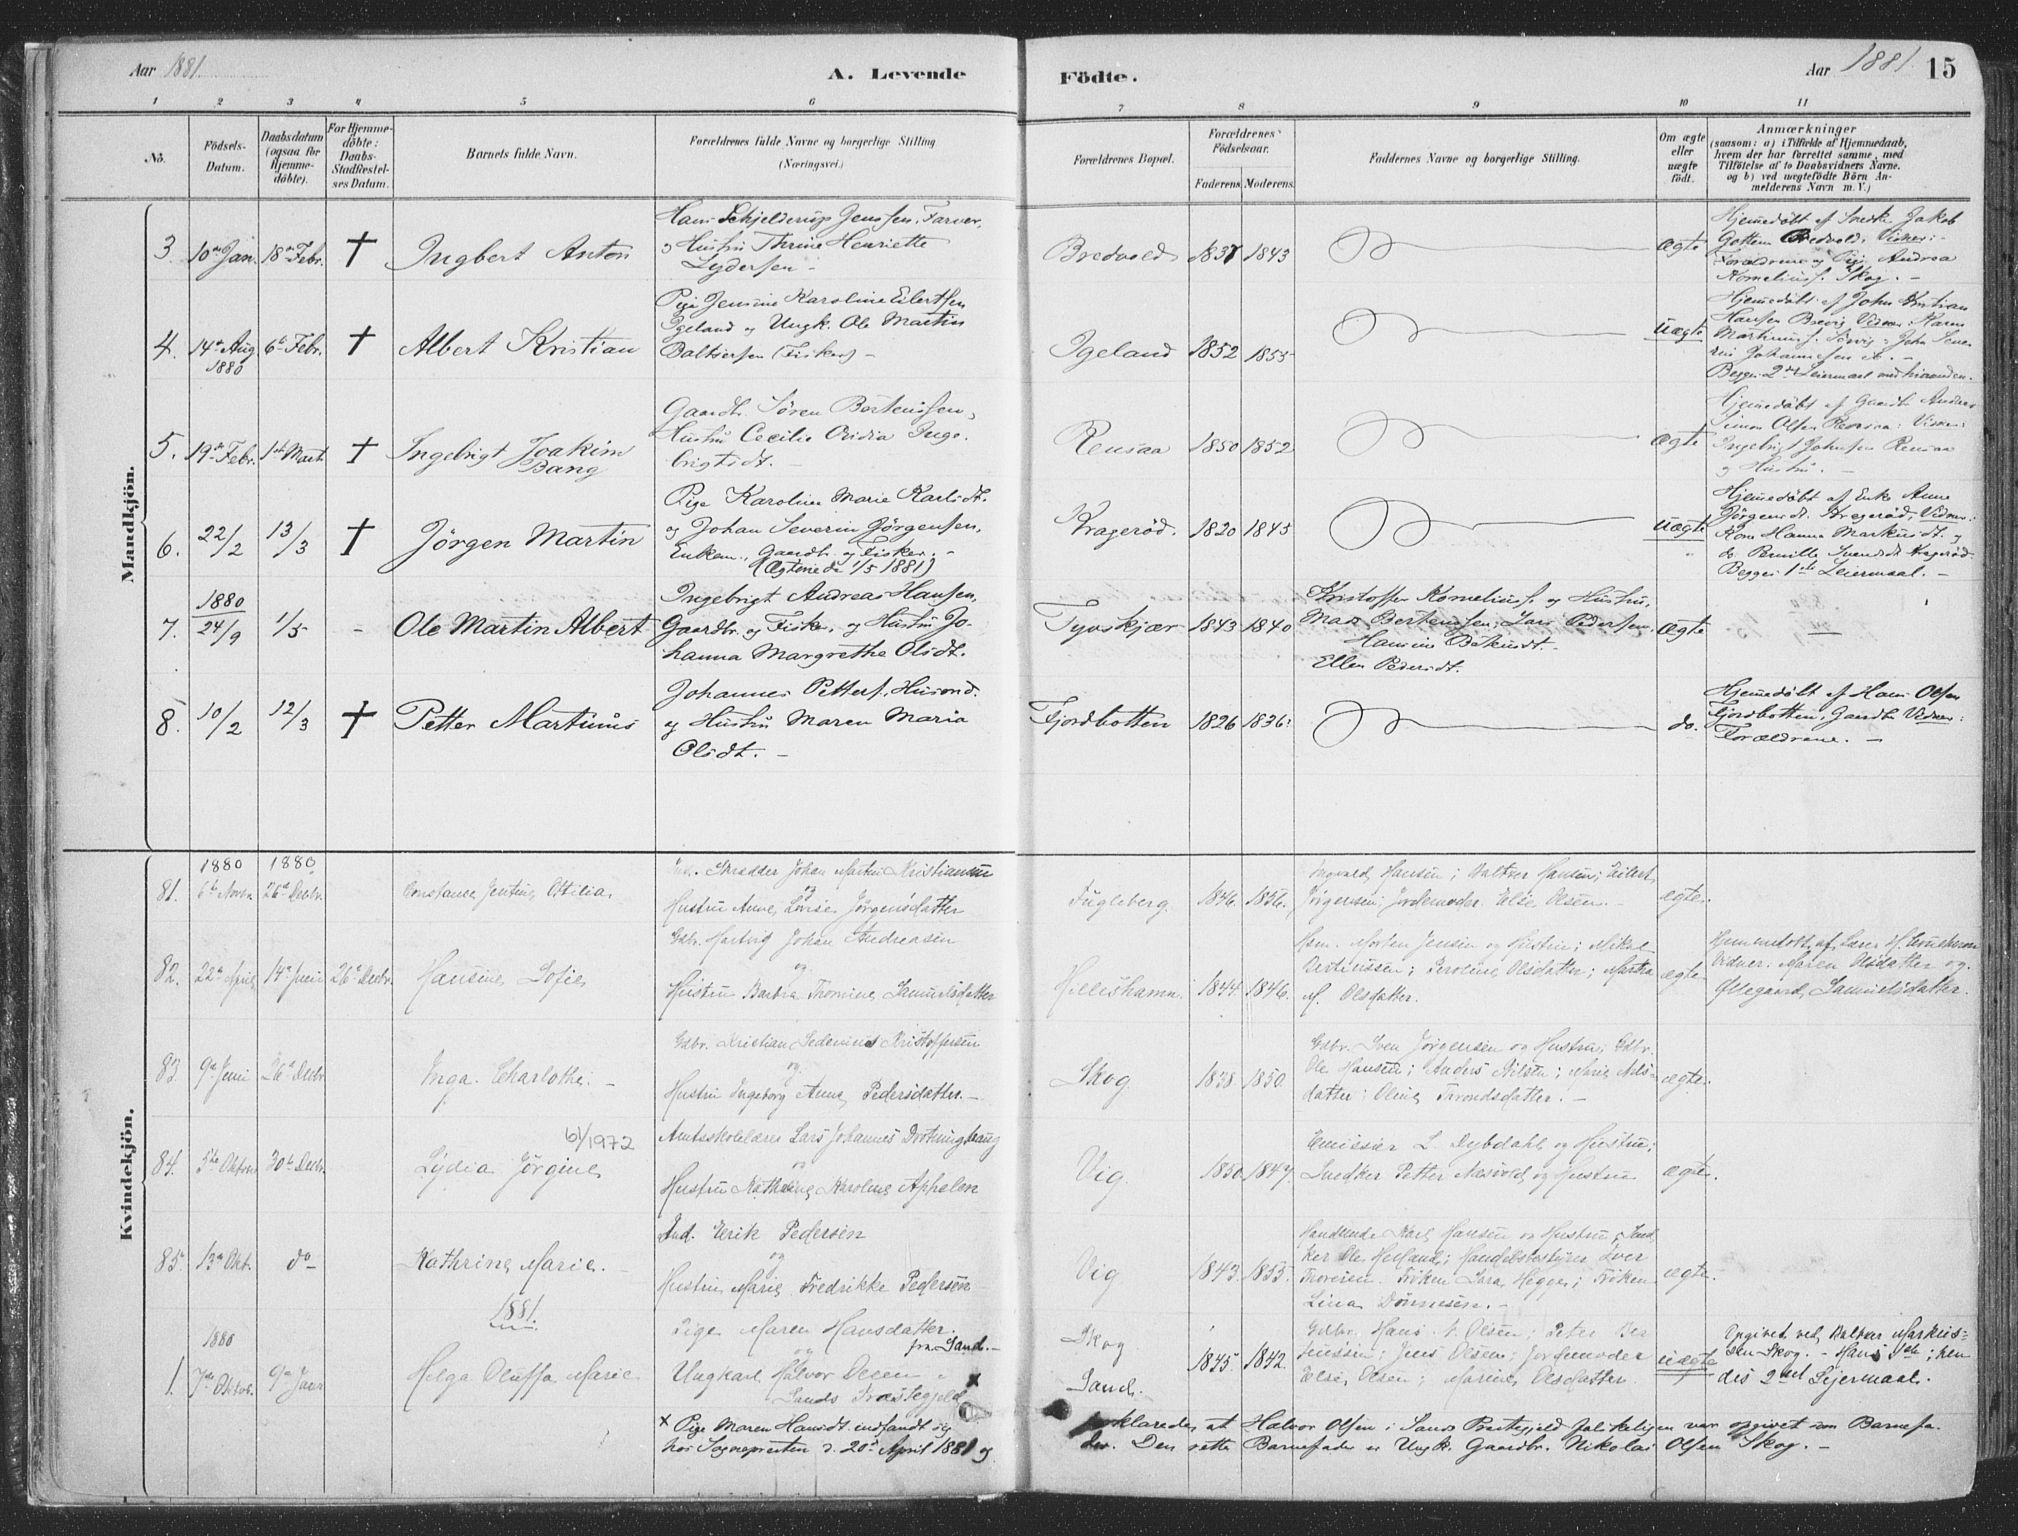 Aar 1881.
A. Levende
Födte.
Aar 1881.
15
1 2 3 4 5 6 7 8 9 10 11
No.
Födsels-
Datum.
Daabsdatum
(ogsaa for
Hjemme-
döbte).
For Hjemme-
döbte:
Daabs-
Stadfæstel-
ses Datum.
Barnets fulde Navn.
Forældrenes fulde Navne og borgerlige Stilling
(Næringsvei.)
Forældrenes Bopæl.
Forældrenes
Födselsaar.
Faderens. Moderens.
Faddernes Navne og borgerlige Stilling.
Om ægte
eller
uægte
födt.
Anmærkninger
(saasom: a) i Tilfælde af Hjemmedaab,
hvem der har forrettet samme, med
Tilföielse af to Daabsvidners Navne.
og b) ved uægtefödte Börn An-
melderens Navn m. V.)
Mandkjön.
3. 10de Jan. 18de Febr. † Ingbert Anton
Hans Schjelderup Jenssen, Farver,
og Hustru Thrine Henriette
Lydersen -
Bredvold 1837 1843 ægte
Hjemedöbt af Snedk. Jakob
Gottem Bredvold. Vidner:
Forældrene og Pige Andrea
Kornelius. Skog. -
4. 14de Aug 1880 6te Febr. † Albert Kristian
Pige Jensine Karoline Eilertsen
Igeland og Ungk. Ole Martin
Baltzersen (Fisker) -
Igeland 1852 1855 uægte
Hjemedöbt af John Kristian
Hansen Brevig Vidner Karen
Johannesen
Begges 2det Leiermaal med hinanden.
5. 19de Febr. 1ste Marts † Ingebrigt Joakim
Bang
Gaardbr. Sören Bertenssen,
Hustru Cecilie Ovidia Inge-
brigtsdt. -
Rensaa 1850 1852 ægte
Hjemedöbt af Gaardbr Anders
Simon Olsen Rensaa: Vidner:
Ingebrigt Johnsen Rensaa
og Hustru. -
6. 22/2 13/3 † Jörgen Martin
Pige Karoline Marie Karlsdt.
og Johan Severin Jörgensen,
Enkem., Gaardbr. og Fisker. -
(Ægteviede 1/5 1881)
Kragerød. 1820 1845 uægte
Hjemedöbt af Enke Anne
Jörgensdt. Kragerød, Vidner:
Kone Hanna Markusdt. og
do. Pernille Svendsdt Kragerød
Begges 1ste Leiermaal. -
7. 1880 24/9 1/5 - Ole Martin Albert
Ingebrigt Andreas Hansen,
Gaardbr. og Fisker, og Hustru Jo-
hanna Margrethe Olsdt.
Tyvskjær 1843 1840
Kristoffer Kornelius. og Hustru,
Mads Bertenssen; Lars Pedersen
Hansine
Ellen Pedersdt.
ægte -
8. 10/2 12/3 † Petter Martinus
Johannes Petters. Husmd.
og Hustru Maren Maria
Olsdt. -
Fjordbotten 1826 1836: do.
Hjemedöbt af Hans Olsen
Fjordbotten, Gaardbr. Vidner:
Forældrene. -
Kvindekjön.
81. 1880 6te Novbr 1880 26de Decbr. Constance Jentine Ottilia.
Skrædder Johan Martin Kristiansen
og
Hustru Anne Lovise Jörgensdatter
Fugleberg. 1846. 1856.
Ingvald Hansen; Baltzer Hansen; Eilert
Jörgensen; Jordemoder Else Olsen. -
ægte.
82. 22de April 14de Juni 26de Decbr. Hansine Sofie
Gdbr. Hartvig Johan Andreasen
og
Hustru Barbra Thomine Samuelsdatter
Hilleshamn. 1844. 1846.
Hsm. Morten Jensen og Hustru; Mikal
Martinussen; Olsdatter; Martha
M. Olsdatter.
ægte
Hjemmedöbt af Lars
Vidner. Maren Olsdatter og
Ollegaard Samuelsdatter.
83. 9de Juni 26de Decbr. Inga Charlothe. -
Gdbr. Kristian Pedersen Kristoffersen
og
Hustru Ingeborg Anne Pedersdatter. -
Skog. 1838. 1850.
Gdbr. Sven Jörgensen og Hustru; Gdbr.
Ole Hansen; Anders Nilsen; Marie Nils-
datter; Oline Trondsdatter. -
ægte.
84. 5te Oktober 30te Decbr. Lydia Jörgine
6/1972
Amtsskolelærer Lars Johannes Drotninghaug
og
Hustru Kathrine Karoline Aphelen
Vig. 1850. 1847.
Emissær L. Dybdahl og Hustru;
Snedker Petter Næsvold og Hustru
ægte.
85. 13de Okt. do Kathrine Marie. -
Ind. Erik Pedersen
og
Hustru Marie Fredrikke Pedersen
Vig 1843. 1855.
Handlende Karl Hansen og Hustru; Sned-
ker Ole Helland; Handelsbestyrer Iver
Thoresen. Fröken Sara Hegge; Fröken
Lina Dönnesen. -
ægte.
1881.
1. 1880 7de Oktob. 9de Janr Helga Oluffa Marie
Pige Maren Hansdatter.
og fra Sand. -
Ungkarl Halvor Olsen
Sands Præstegjeld ×
Skog
Sand. 1845. 1842.
Gdbr. Hans N. Olsen; Peter Ber
tinussen; Jens Olsen; Jordemoder
Else Olsen; Marine Olsdatter.
uægte
Opgivet ved Baltzer Markus-
sen Skog. - Hans 1ste; hen
des 2det Lejermaal.
× Pige Maren Hansdt. indfandt sig
hos Sognepresten d. 20de April 1881 og
forklarede, at Halvor Olsen i Sands Præstegjeld falskeligen var opgivet som Barnefa-
der. Den rette Barnefader er Ungk. Gaardbr. Nikolai Olsen Skog. -